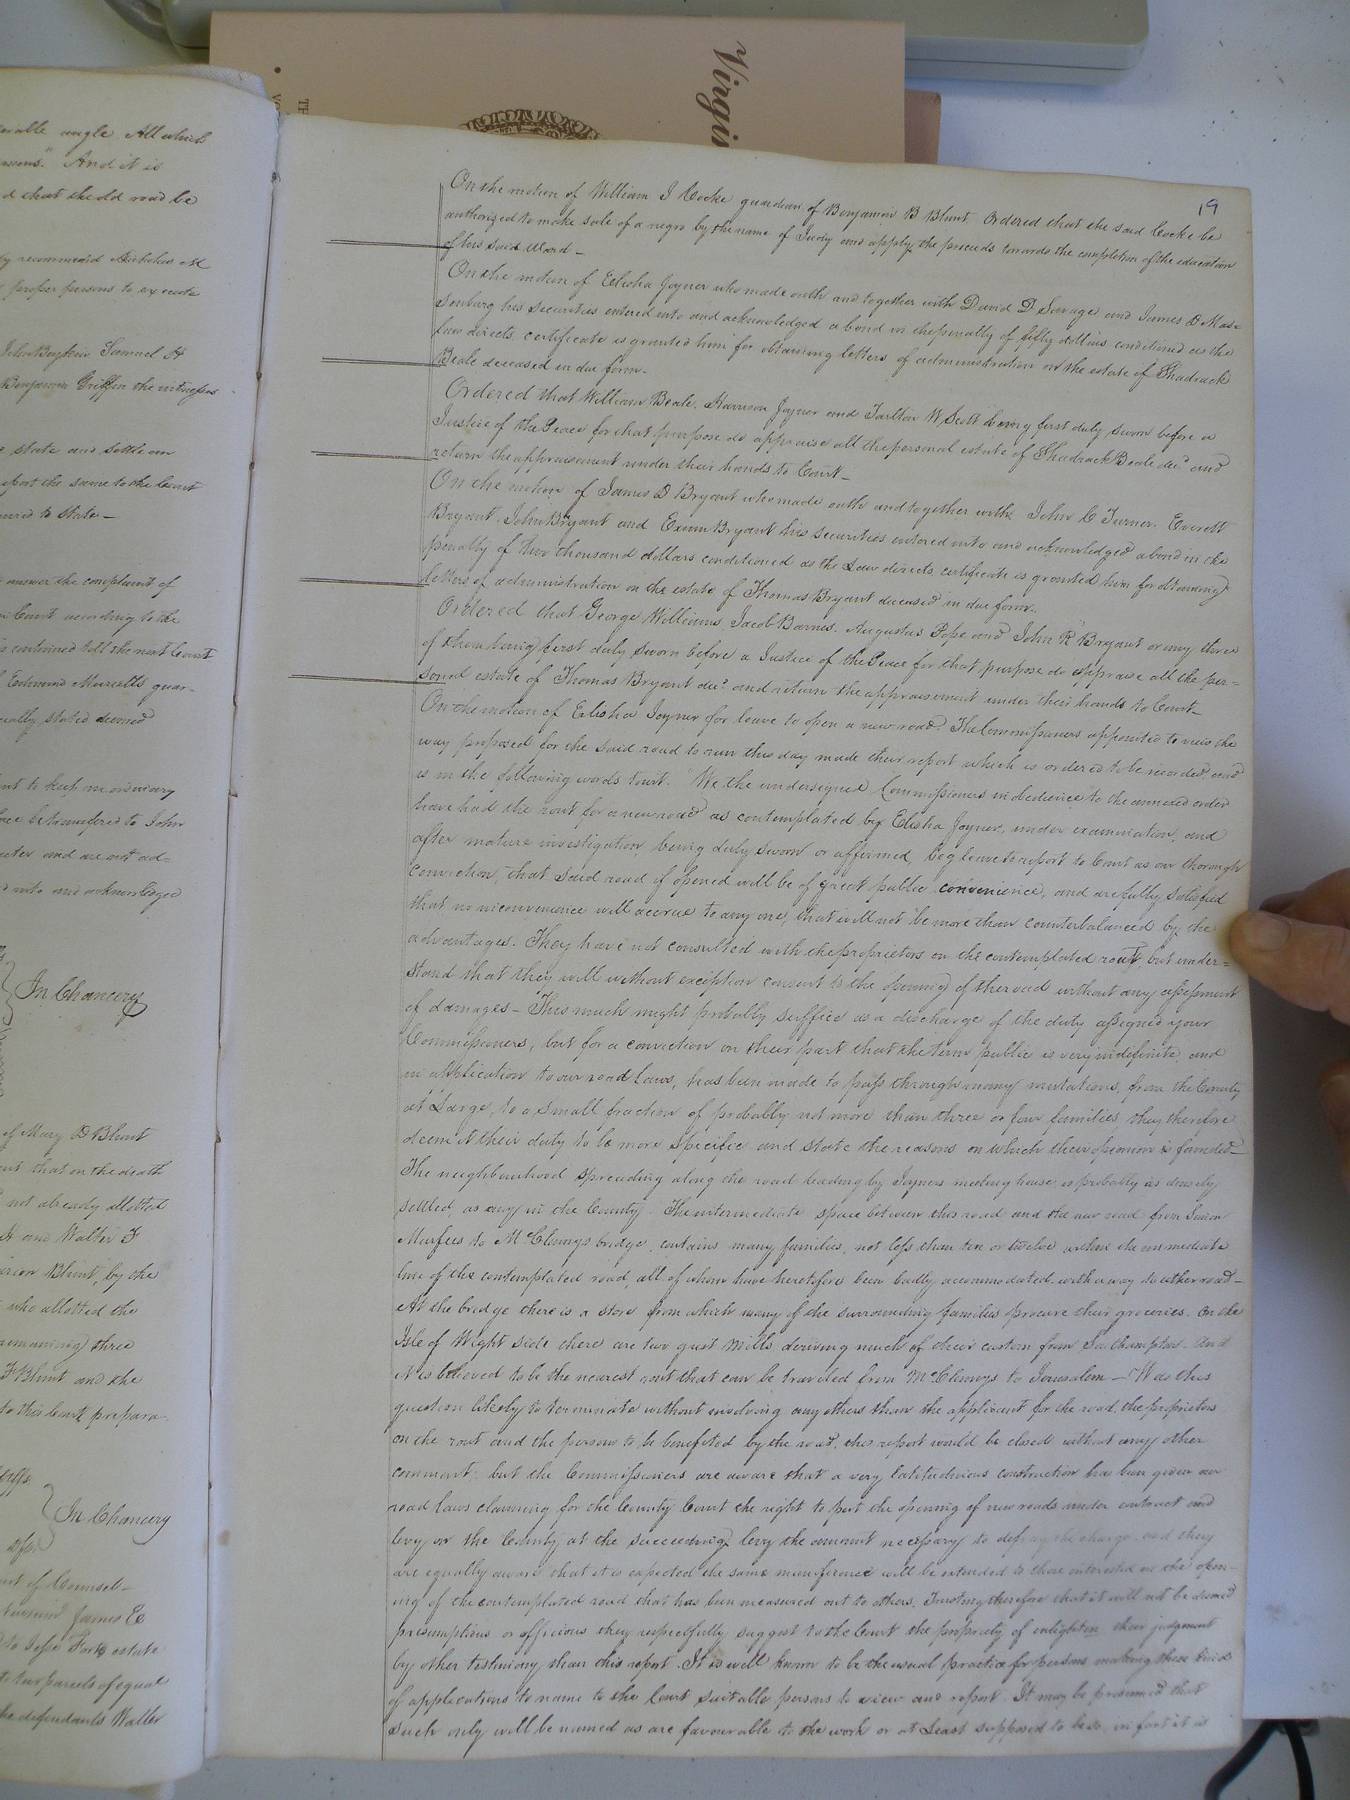 Virgi
TH
19
On the motion of William J Cocke guardian of Benjamin B Blunt Ordered that the said Cocke be
authorized to make sale of a negro by the name of and apply the proceeds towards the completion of the education
of his said Ward –
On the motion of Elisha Joyner who made oath and together with David D Savage and James D Mas=
senburg his securities entered into and acknowledged a bond in the penalty of fifty dollars conditioned as the
Law directs certificate is granted him for obtaining letters of administration on the estate of Shadrack
Beale deceased in due form.
Ordered that William Beale, Harrison Joyner and Tarlton W Scott being first duly sworn before a
Justice of the Peace for that purpose do appraise all the personal estate of Shadrack Beale decd and
return the appraisement under their hands to Court –
On the motion of James D Bryant who made oath and together with John C Turner. Everett
Bryant, John Bryant and Exum Bryant his securities entered into and acknowledged a bond in the
penalty of two thousand dollars conditioned as the Law directs, certificate is granted him for obtaining
letters of administration on the estate of Thomas Bryant deceased in due form.
Ordered that George Williams Jacob Barnes, Augustus Pope and John R Bryant or any three
of them being first duly sworn before a Justice of the Peace for that purpose do appraise all the per=
sonal estate of Thomas Bryant decd and return the appraisement under their hands to Court –
On the motion of Elisha Joyner for leave to open a new road. The Commissioners appointed to view the
way proposed for the said road to run this day made their report which is ordered to be recorded and
is in the following words towit. "We the undersigned Commissioners in obedience to the annexed order
have had the rout for a new road as contemplated by Elisha Joyner, under examination, and
after mature investigation being duly sworn or affirmed, beg leave to report to Court as our thorough
conviction, that said road if opened will be of great public convenience, and are fully satisfied
that no inconvenience will accrue to any one, that will not be more than counterbalanced by the
advantages. They have not consulted with the proprietors on the contemplated rout, but under=
stand that they will without exception consent to the opening of the road without any assessment
of damages – This much might probably suffice as a discharge of the duty assigned your
Commissioners, but for a conviction on their part that the term public is very indefinite, and
in application to our road Laws, has been made to pass through many mutations, from the County
at Large, to a small fraction of probably not more than three or four families, they therefore
deem it their duty to be more specific and state the reasons on which their opinion is founded –
The neighbourhood spreading along the road leading by Joyners meeting house, is probably as densely
settled, as any in the County. The intermediate space between this road and the new road from Simon
Murfees to McClenys bridge, contains many families, not less than ten or twelve within the immediate
line of the contemplated road, all of whom have heretofore been badly accommodated with a way to either road –
At the bridge there is a store from which many of the surrounding families procure their groceries. On the
Isle of Wight side there are two grist Mills deriving much of their custom from Southampton. And
it is believed to be the nearest rout that can be traveled from McClenys to Jerusalem – Was this
question likely to terminate without involving any others than the applicant for the road, the proprietors
on the rout and the persons to be benefited by the road, this report would be closed without any other
comment; but the Commissioners are aware that a very latitudinous construction has been given our
road laws claiming for the County Court the right to put the opening of new roads under contract and
levy on the County at the succeeding levy the amount necessary to defray the charge. and they
are equally aware that it is expected the same munificence will be extended to those interested in the open-
ing of the contemplated road that has been measured out to others. Trusting therefore that it will not be deemed
presumptious or officious they respectfully suggest to the Court the propriety of enlighten their judgment
by other testimony than this report. It is well known to be the usual practice for persons making these kind
of applications to name to the Court suitable persons to view and report. It may be presumed that
such only will be named as are favourable to the work or at Least supposed to be so, in fact it is
angle All which
And it is
d that the old road be
recommend Nicholas M
proper persons to execute
John Boykin Samuel H
Benjamin Griffin the witnesses
state and settle an
report the same to the Court
to state –
answer the complaint of
Court according to the
is continued till the next Court
Edmund Murrells guar-
cially stated deemed
to keep an ordinary
be transferred to John
and are not ad=
into and acknowledged
In Chancery
of Mary D Blunt
that on the death
not already allotted
and Walter F
Blunt, by the
who allotted the
remaining three
F Blunt and the
to this Court prepara-
In Chancery
of Counsel –
James E
to Jesse Forts estate
parcels of equal
the defendants Walter